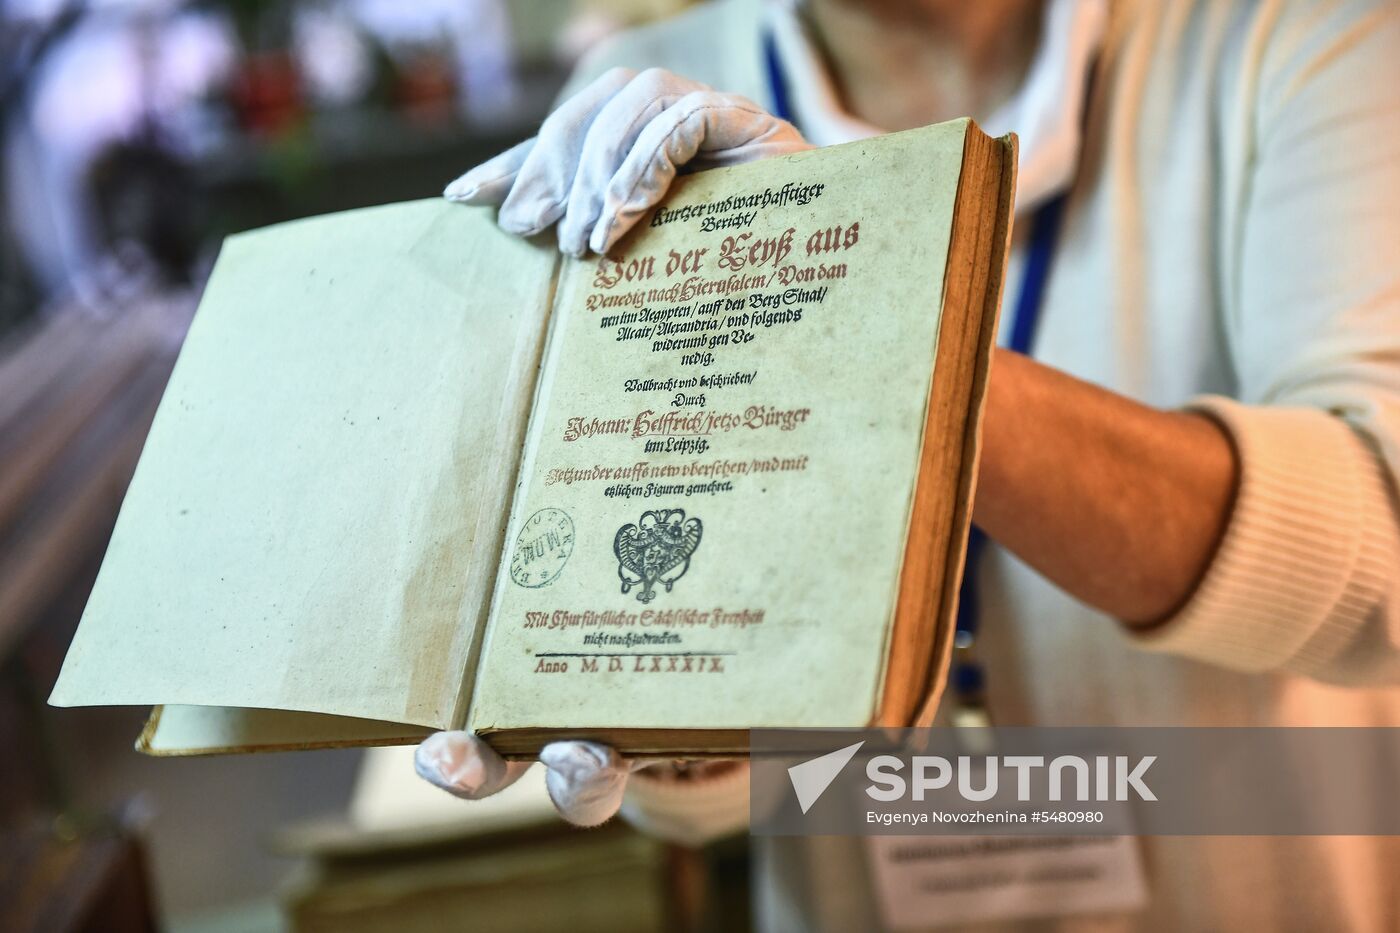 Kurtzer vnd warhafftiger
Bericht/
Von der Reyß aus
Venedig nach Hierusalem/ Von dan
nen inn Aegypten/ auff den Berg Sinai/
Alcair/ Alexandria/ vnd folgends
widerumb gen Ve-
nedig.
Vollbracht vnd beschrieben/
Durch
Johann: Helffrich/ jetzo Bürger
inn Leipzig.
Jetzunder auffs new vbersehen/ vnd mit
etzlichen Figuren gemehret.
BIBLIOTEKA
MDM
Mit Churfürstlicher Sächsischer Freyheit
nicht nachzudrucken.
Anno M. D. LXXXIX.
SPUTNIK
Evgenya Novozhenina #5480980